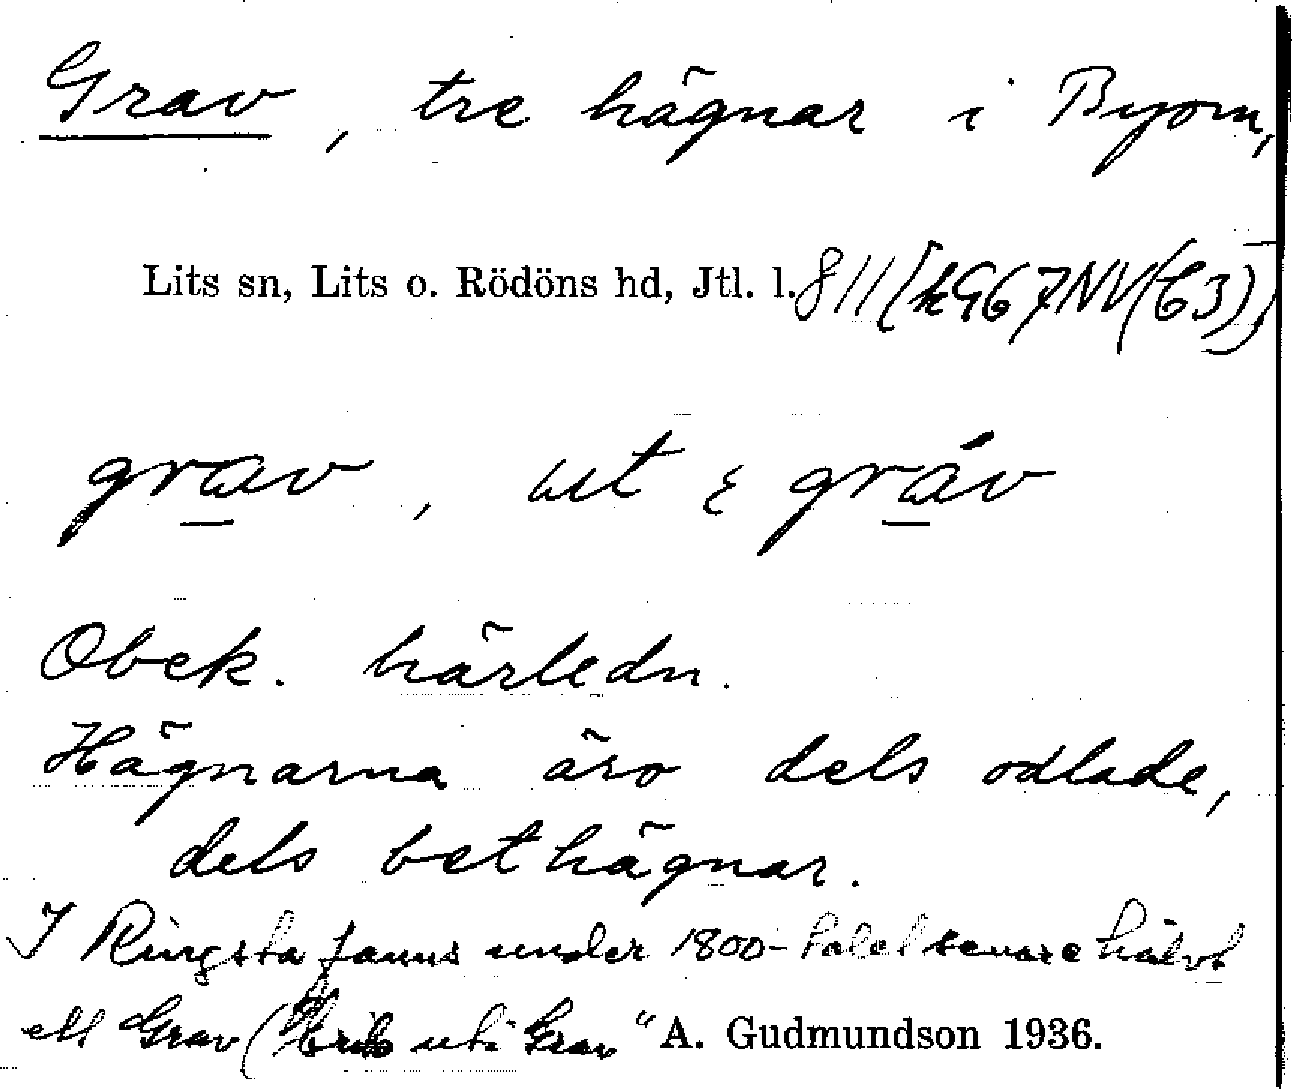 Grav, tre hägnar i Byom,
Lits sn, Lits o. Rödöns hd, Jtl. l. 811 (k967NV(C3))
grav, ut i gráv
Obek. härledn.
Hägnarna äro dels odlade,
dels bethägnar.
I Ringsta fanns under 1800-talet senare hälvt
ett Grav ("Erik uti Grav" A. Gudmundson 1936.